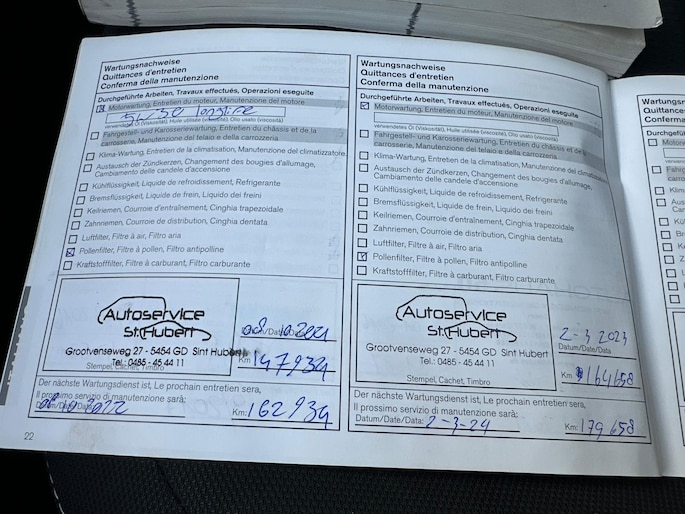 Wartungsnachweise
Quittances d'entretien
Conferma della manutenzione
Durchgeführte Arbeiten, Travaux effectués, Operazioni eseguite
Motorwartung, Entretien du moteur, Manutenzione del motore
5L/30 longlife
verwendetes Öl (Viskosität), Huile utilisée (viscosité), Olio usato (viscosità)
Fahrgestell- und Karosseriewartung, Entretien du châssis et de la
carrosserie, Manutenzione del telaio e della carrozzeria
Klima-Wartung, Entretien de la climatisation, Manutenzione del climatizzatore
Austausch der Zündkerzen, Changement des bougies d'allumage,
Cambiamento delle candele d'accensione
Kühlflüssigkeit, Liquide de refroidissement, Refrigerante
Bremsflüssigkeit, Liquide de frein, Liquido dei freini
Keilriemen, Courroie d'entraînement, Cinghia trapezoidale
Zahnriemen, Courroie de distribution, Cinghia dentata
Luftfilter, Filtre à air, Filtro aria
Pollenfilter, Filtre à pollen, Filtro antipolline
Kraftstofffilter, Filtre à carburant, Filtro carburante
Autoservice
St.Hubert
Grootvenseweg 27 - 5454 GD Sint Hubert
Tel.: 0485 - 45 44 11
Stempel, Cachet, Timbro
08.10.2021
Datum/Date/Data
Km: 147934
Der nächste Wartungsdienst ist, Le prochain entretien sera,
Il prossimo servizio di manutenzione sarà:
Datum/Date/Data: 2022
Km: 162934
22
Wartungsnachweise
Quittances d'entretien
Conferma della manutenzione
Durchgeführte Arbeiten, Travaux effectués, Operazioni eseguite
Motorwartung, Entretien du moteur, Manutenzione del motore
verwendetes Öl (Viskosität), Huile utilisée (viscosité), Olio usato (viscosità)
Fahrgestell- und Karosseriewartung, Entretien du châssis et de la
carrosserie, Manutenzione del telaio e della carrozzeria
Klima-Wartung, Entretien de la climatisation, Manutenzione del
Austausch der Zündkerzen, Changement des bougies d'allumage,
Cambiamento delle candele d'accensione
Kühlflüssigkeit, Liquide de refroidissement, Refrigerante
Bremsflüssigkeit, Liquide de frein, Liquido dei freini
Keilriemen, Courroie d'entraînement, Cinghia trapezoidale
Zahnriemen, Courroie de distribution, Cinghia dentata
Luftfilter, Filtre à air, Filtro aria
Pollenfilter, Filtre à pollen, Filtro antipolline
Kraftstofffilter, Filtre à carburant, Filtro carburante
Autoservice
St.Hubert
Grootvenseweg 27 - 5454 GD Sint Hubert
Tel.: 0485 - 45 44 11
Stempel, Cachet, Timbro
2-3 2023
Datum/Date/Data
Km 164658
Der nächste Wartungsdienst ist, Le prochain entretien sera,
Il prossimo servizio di manutenzione sarà:
Datum/Date/Data: 2-3-24
Km: 179658